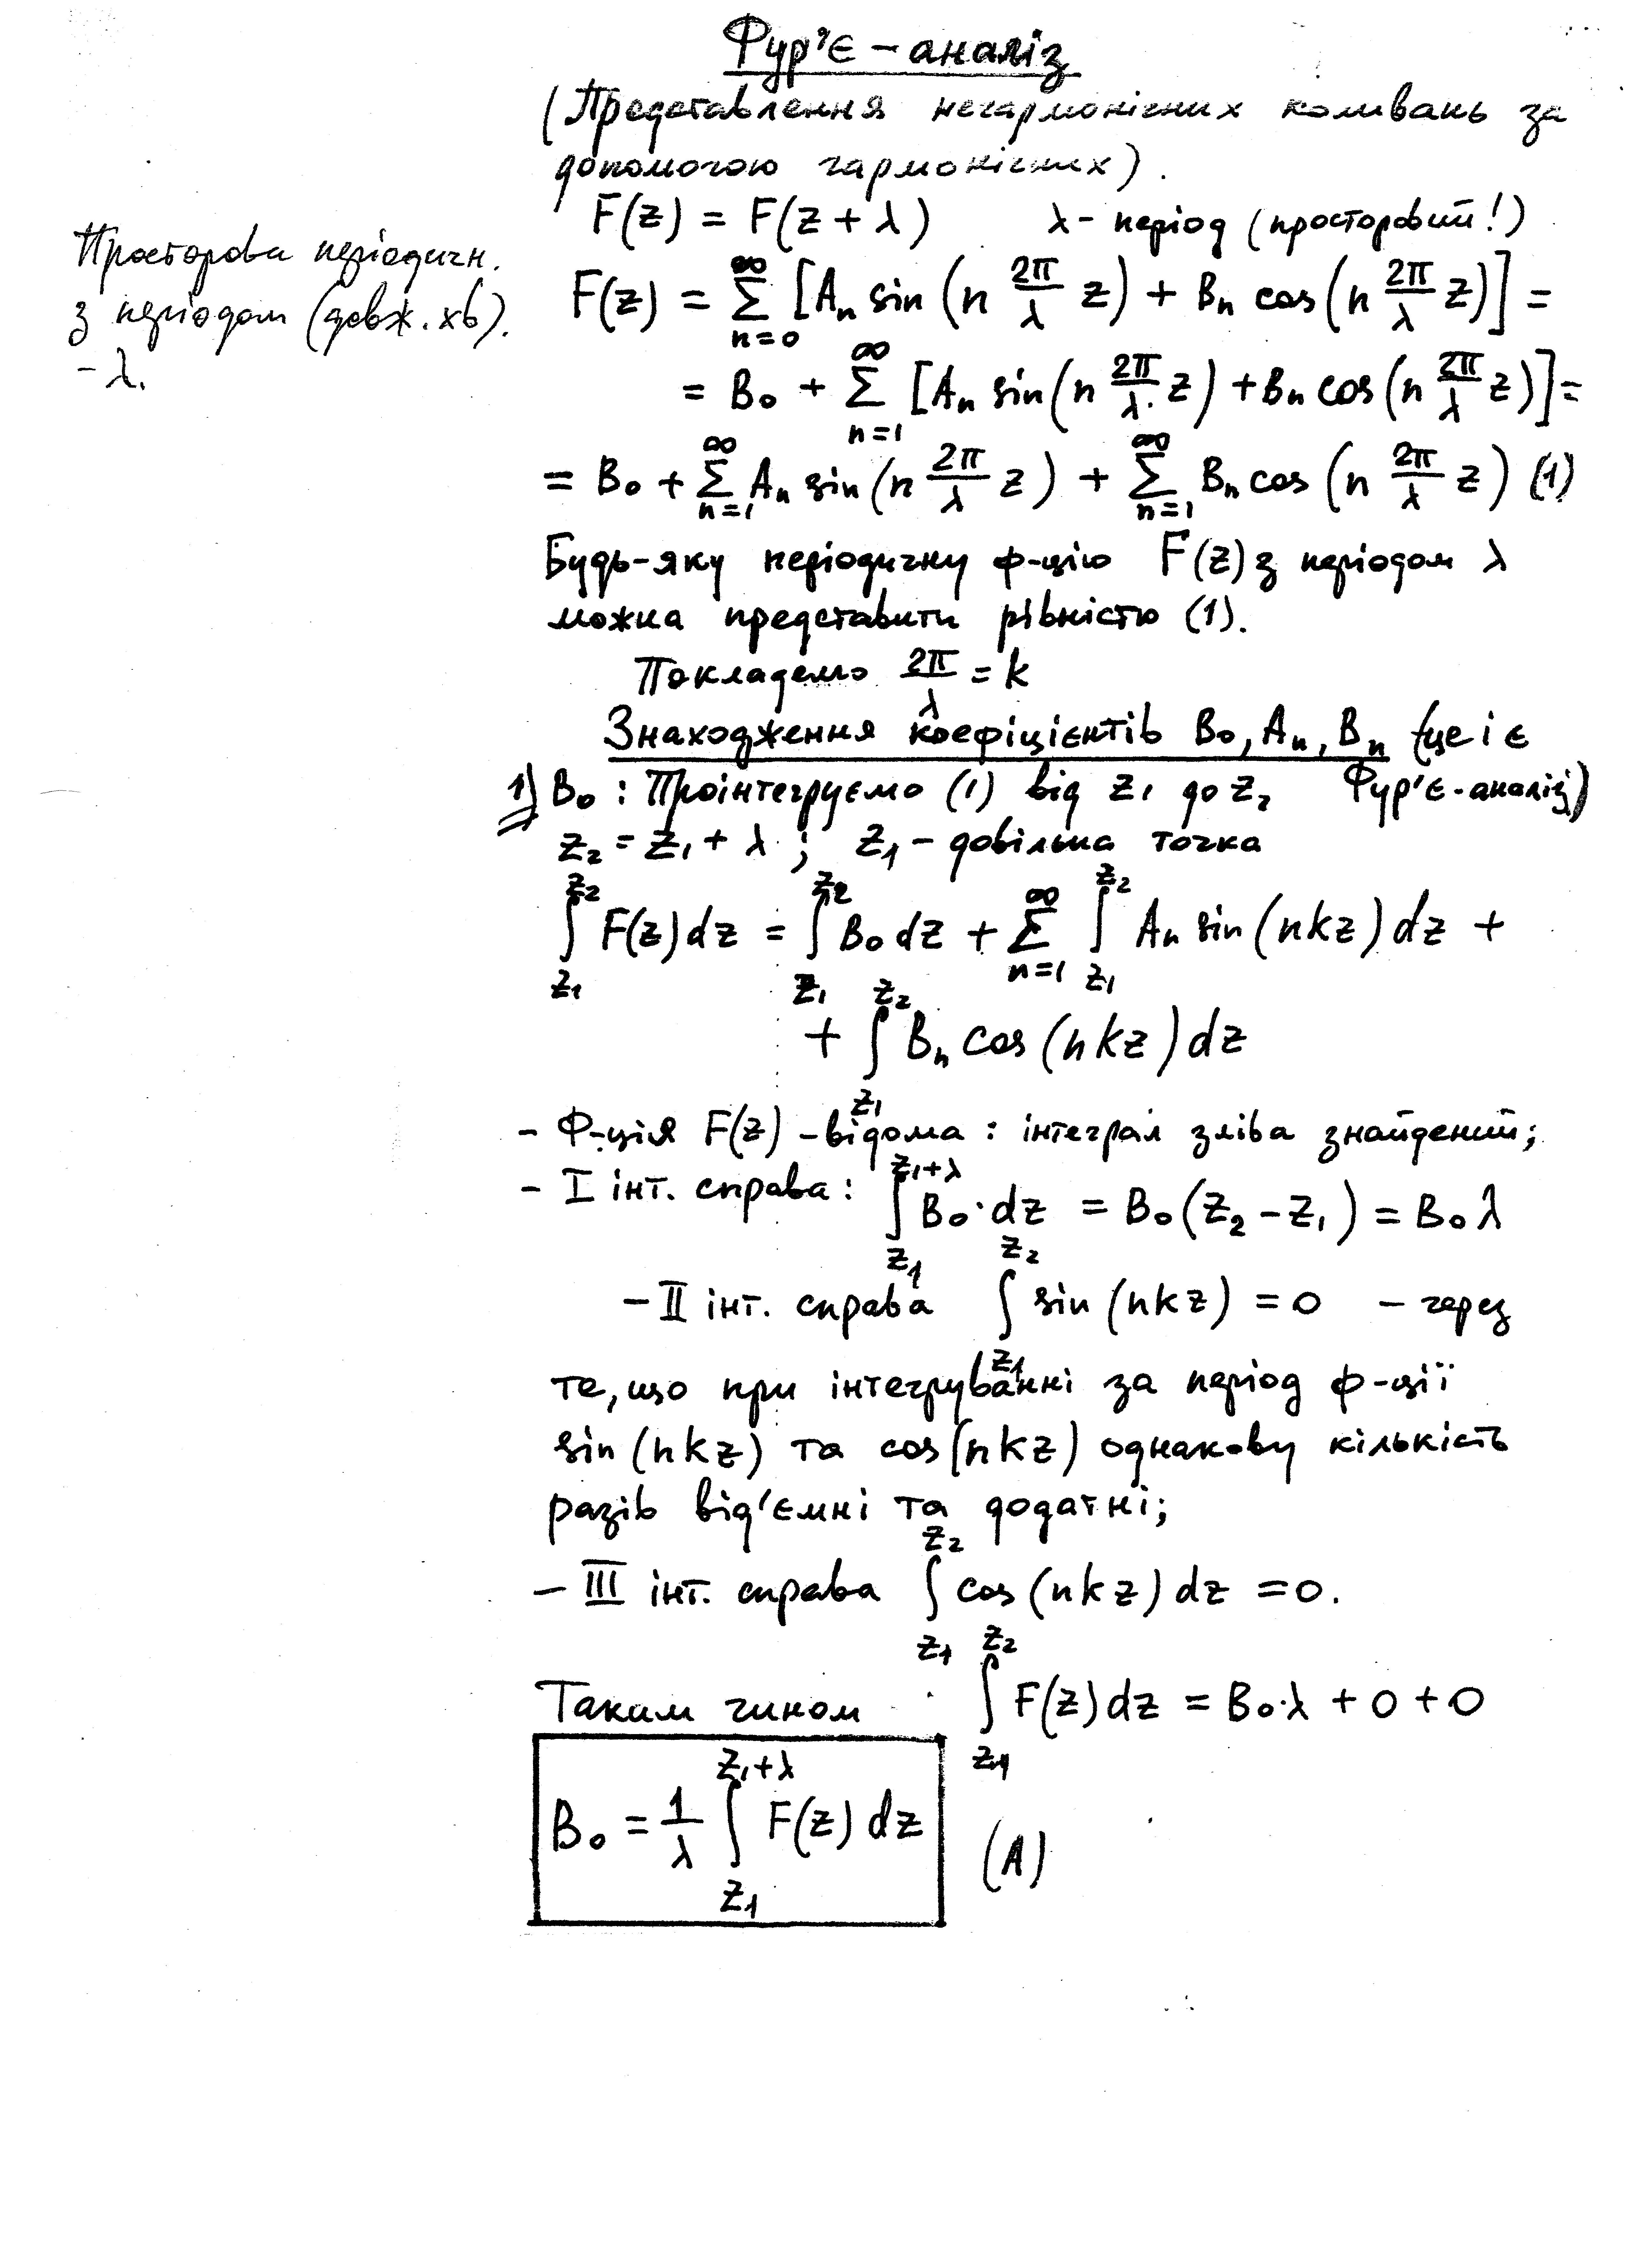 Фур'є – аналіз
(Представлення негармонічних коливань за
допомогою гармонічних).
F(z) = F(z + λ)   λ – період (просторовий!)
Просторова періодичн.
з періодом (довж. хв).
– λ.
F(z) = ∑_{n=0}^{∞} [A_n sin (n 2π/λ z) + B_n cos (n 2π/λ z)] =
= B₀ + ∑_{n=1}^{∞} [A_n sin (n 2π/λ z) + B_n cos (n 2π/λ z)] =
= B₀ + ∑_{n=1}^{∞} A_n sin (n 2π/λ z) + ∑_{n=1}^{∞} B_n cos (n 2π/λ z) (1)
Будь-яку періодичну ф-цію F(z) з періодом λ
можна представити рівністю (1).
Покладемо 2π/λ = k
Знаходження коефіцієнтів B₀, A_n, B_n (це і є
Фур'є-аналіз)
1) B₀ : Проінтегруємо (1) від z₁ до z₂
z₂ = z₁ + λ ; z₁ – довільна точка
∫_{z₁}^{z₂} F(z) dz = ∫_{z₁}^{z₂} B₀ dz + ∑_{n=1}^{∞} ∫_{z₁}^{z₂} A_n sin (nkz) dz +
+ ∫_{z₁}^{z₂} B_n cos (nkz) dz
– Ф-ція F(z) – відома : інтеграл зліва знайдений;
– I інт. справа : ∫_{z₁}^{z₁+λ} B₀ · dz = B₀ (z₂ – z₁) = B₀ λ
– II інт. справа ∫_{z₁}^{z₂} sin (nkz) = 0 – через
те, що при інтегруванні за період ф-ції
sin (nkz) та cos (nkz) однакову кількість
разів від'ємні та додатні;
– III інт. справа ∫_{z₁}^{z₂} cos (nkz) dz = 0.
Таким чином ∫_{z₁}^{z₂} F(z) dz = B₀·λ + 0 + 0
B₀ = 1/λ ∫_{z₁}^{z₁+λ} F(z) dz (A)